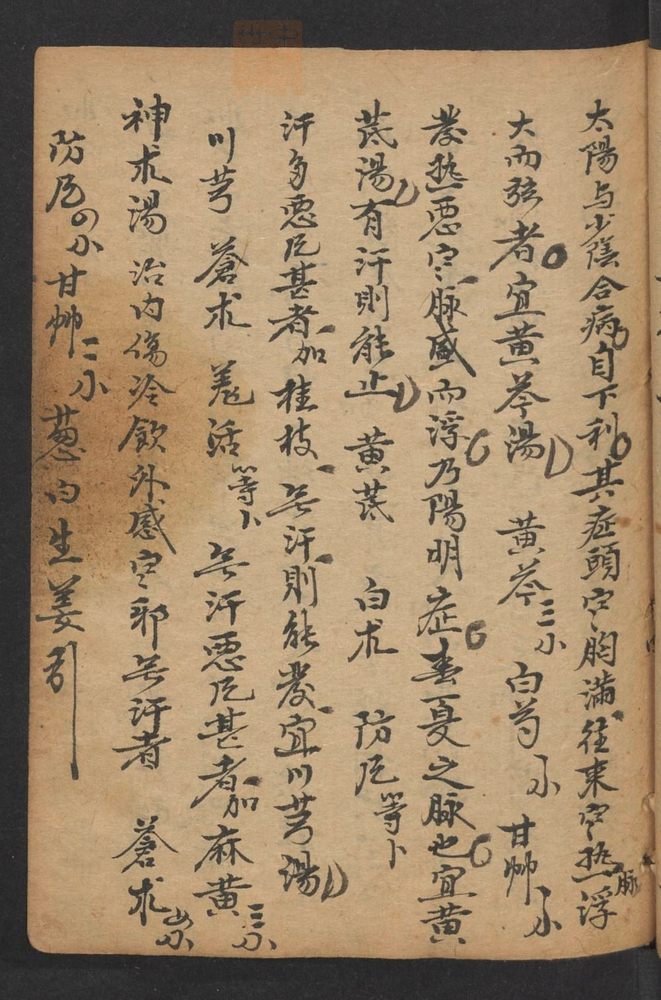 太陽与少陰合病自下利其症頭宀胸滿往来宀热脉浮
大而弦者宜黄芩湯 黄芩三小 白芍小 甘帅小
發热惡宀脉盛而浮乃陽明症春夏之脉也宜黄
芪湯有汗則能止 黄芪 白朮 防卮等卜
汗多惡卮甚者加桂枝无汗則能發宜川芎湯
川芎 蒼朮 羗活等卜 无汗惡卮甚者加麻黄三小
神朮湯 治内傷冷飲外感宀邪无汗者 蒼朮
防卮 甘帅二小 葱白生姜引